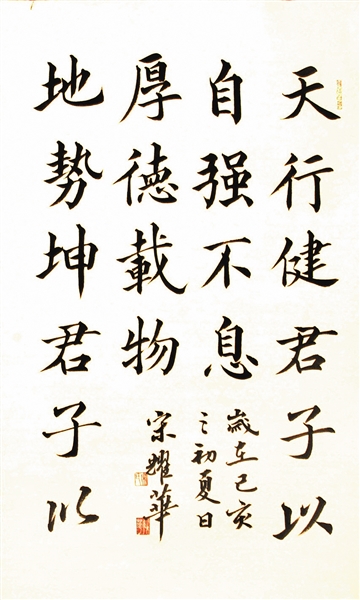 天行健君子以
自强不息
厚德載物
地勢坤君子以
歲在己亥
之初夏日
宋耀華